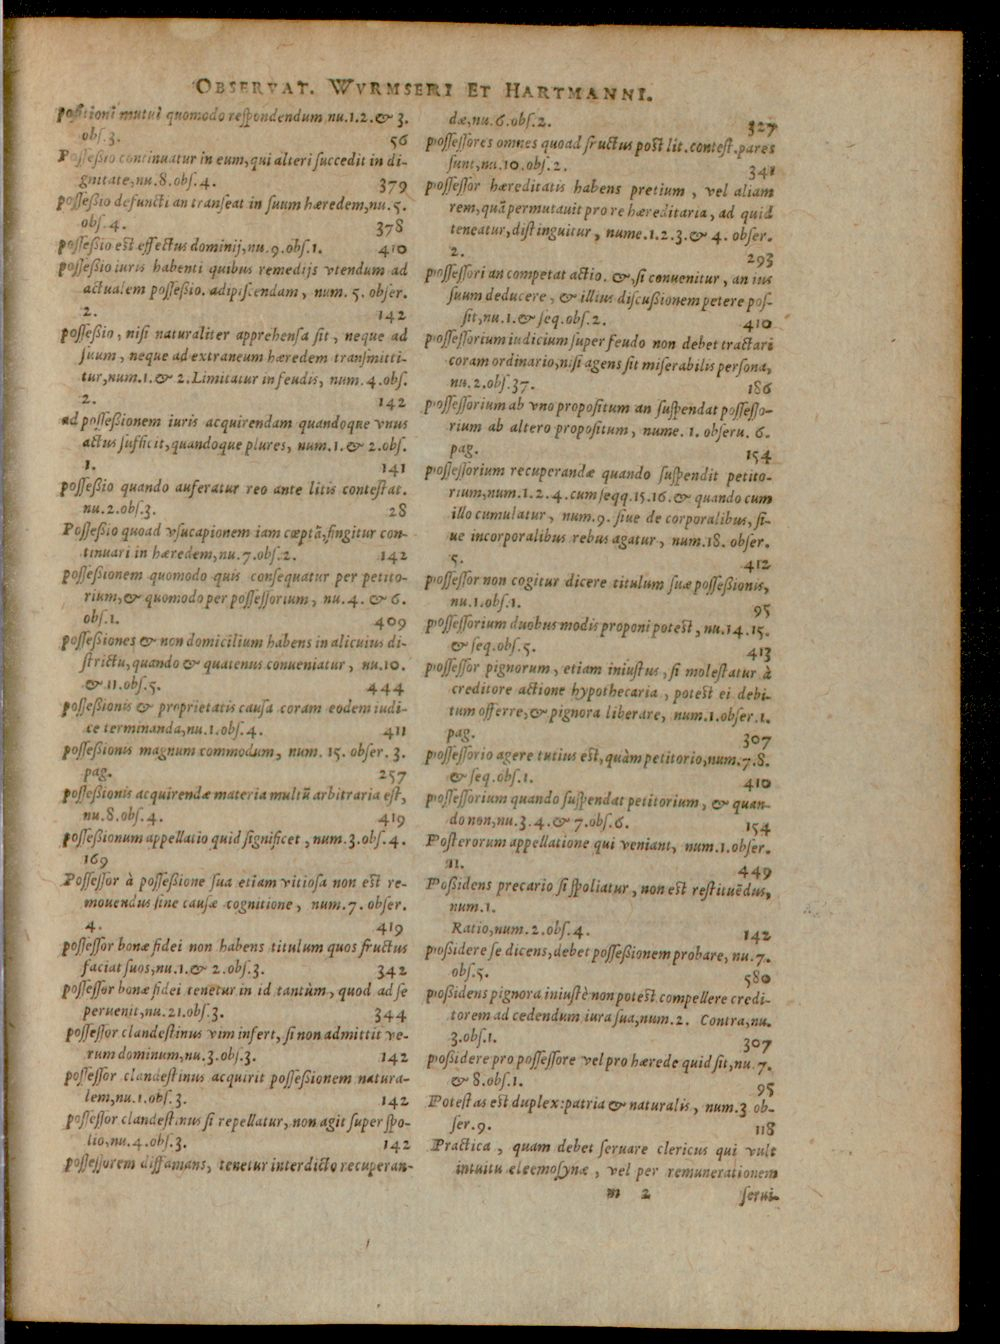 OBSERVAT. WVRMSERI ET HARTMANNI.
positioni mutui quomodo respondendum nu.1.2.& 3.
obs.3. 56
Possessio continuatur in eum, qui alteri succedit in di-
gnitate, nu.8.obs.4. 379
possessio defuncti an transeat in suum hæredem, nu.5.
obs.4. 378
possessio est effectus dominij, nu.9.obs.1. 410
possessio iuris habenti quibus remedijs vtendum ad
actualem possessio. adipiscendam, num.5. obser.
2. 142
possessio, nisi naturaliter apprehensa sit, neque ad
suum, neque ad extraneum hæredem transmitti-
tur, num.1.& 2. Limitatur in feudis, num.4.obs.
2. 142
ad possessionem iuris acquirendam quandoque vnus
actus sufficit, quandoque plures, num.1.& 2.obs.
1. 141
possessio quando auferatur reo ante litis contestat.
nu.2.obs.3. 28
Possessio quoad vsucapionem iam cœptā, fingitur con-
tinuari in hæredem, nu.7.obs.2. 142
possessionem quomodo quis consequatur per petito-
rium, & quomodo per possessorium, nu.4. & 6.
obs.1. 409
possessiones & non domicilium habens in alicuius di-
strictu, quando & quatenus conueniatur, nu.10.
& 11.obs.5. 444
possessionis & proprietatis causa coram eodem iudi-
ce terminanda, nu.1.obs.4. 411
possessionis magnum commodum, num. 15. obser. 3.
pag. 257
possessionis acquirendæ materia multū arbitraria est,
nu.8.obs.4. 419
possessionum appellatio quid significet, num.3.obs.4.
169
Possessor à possessione sua etiam vitiosa non est re-
mouendus sine causæ cognitione, num.7. obser.
4. 419
possessor bonæ fidei non habens titulum quos fructus
faciat suos, nu.1.& 2.obs.3. 342
possessor bonæ fidei tenetur in id tantùm, quod ad se
peruenit, nu.21.obs.3. 344
possessor clandestinus vim infert, si non admittit ve-
rum dominum, nu.3.obs.3. 142
possessor clandestinus acquirit possessionem natura-
lem, nu.1.obs.3. 142
possessor clandestinus si repellatur, non agit super spo-
lio, nu.4.obs.3. 142
possessorem diffamans, tenetur interdicto recuperan-
dæ, nu.6.obs.2. 327
possessores omnes quoad fructus post lit. contest. pares
sunt, nu.10.obs.2. 341
possessor hæreditatis habens pretium, vel aliam
rem, quā permutauit pro re hæreditaria, ad quid
teneatur, distinguitur, nume.1.2.3.& 4. obser.
2. 293
possessori an competat actio. &, si conuenitur, an ius
suum deducere, & illius discussionem petere pos-
sit, nu.1.& seq.obs.2. 410
possessorium iudicium super feudo non debet tractari
coram ordinario, nisi agens sit miserabilis persona,
nu.2.obs.37. 186
possessorium ab vno propositum an suspendat possesso-
rium ab altero propositum, nume. 1. obseru. 6.
pag. 154
possessorium recuperandæ quando suspendit petito-
rium, num.1.2.4.cum seqq.15.16.& quando cum
illo cumulatur, num.9. siue de corporalibus, si-
ue incorporalibus rebus agatur, num.18. obser.
5. 412
possessor non cogitur dicere titulum suæ possessionis,
nu.1.obs.1. 95
possessorium duobus modis proponi potest, nu.14.15.
& seq.obs.5. 413
possessor pignorum, etiam iniustus, si molestatur à
creditore actione hypothecaria, potest ei debi-
tum offerre, & pignora liberare, num.1.obser.1.
pag. 307
possessorio agere tutius est, quàm petitorio, num.7.8.
& seq.obs.1. 410
possessorium quando suspendat petitorium, & quan-
do non, nu.3.4.& 7.obs.6. 154
Posterorum appellatione qui veniant, num.1.obser.
11. 449
Possidens precario si spoliatur, non est restituēdus,
num.1.
Ratio, num.2.obs.4. 142
possidere se dicens, debet possessionem probare, nu.7.
obs.5. 580
possidens pignora iniustè non potest compellere credi-
torem ad cedendum iura sua, num.2. Contra, nu.
3.obs.1. 307
possidere pro possessore vel pro hærede quid sit, nu.7.
& 8.obs.1. 95
Potestas est duplex: patria & naturalis, num.3 ob-
ser.9. 118
Practica, quam debet seruare clericus qui vult
intuitu eleemosynæ, vel per remunerationem
m 2 serui-